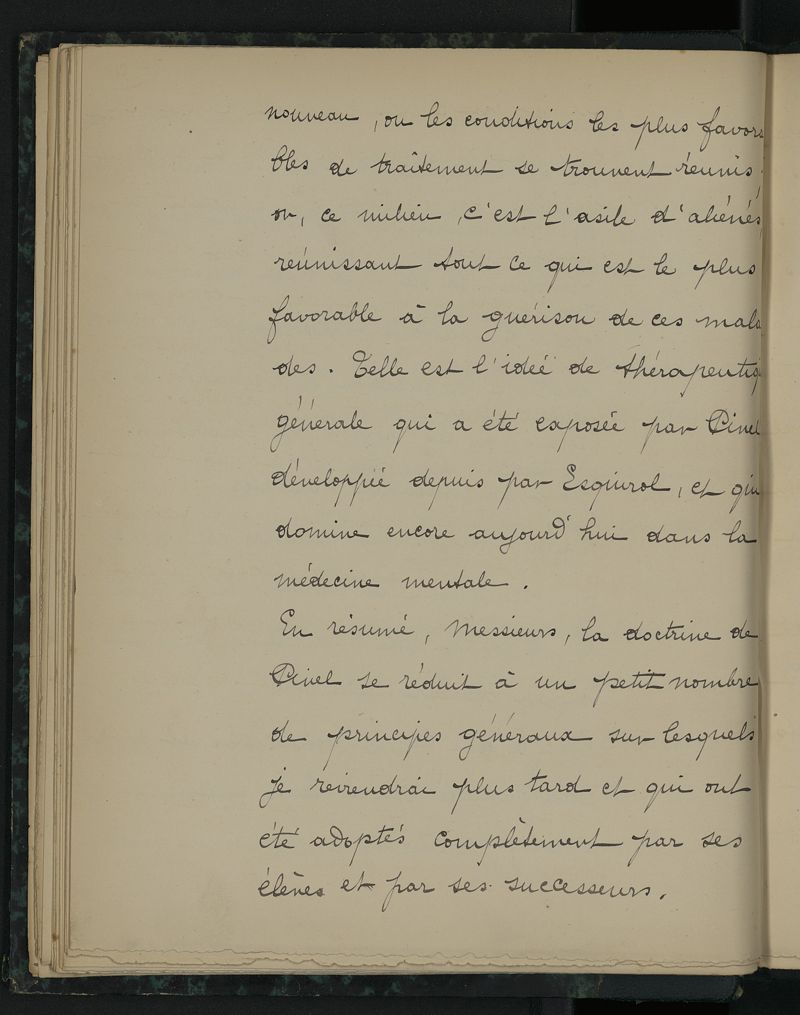 nouveau, ou les conditions les plus favora
bles de traitement se trouvent réunis.
or, ce milieu, c'est l'asile d'aliénés,
réunissant tout ce qui est le plus
favorable à la guérison de ces mala
des. Telle est l'idée de thérapeutiq
générale qui a été exposée par Pinel
développée depuis par Esquirol, et qui
domine encore aujourd'hui dans la
médecine mentale.
En résumé, Messieurs, la doctrine de
Pinel se réduit à un petit nombre
de principes généraux sur lesquels
je reviendrai plus tard et qui ont
été adoptés complètement par ses
élèves et par ses successeurs.